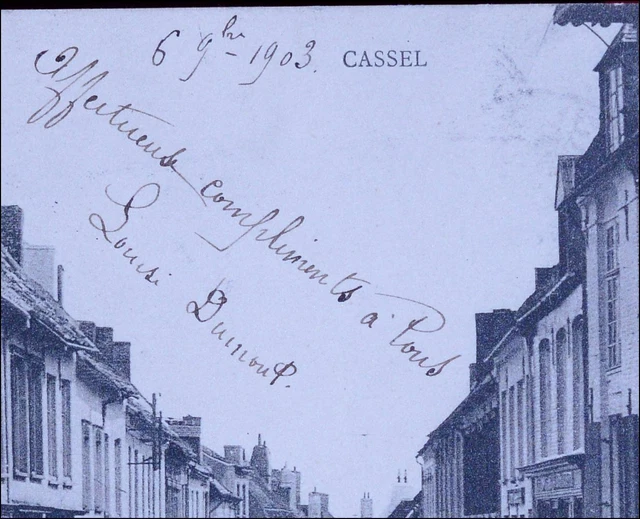 6 9bre - 1903. CASSEL
Affectueux compliments à tous
Louise Dumont.